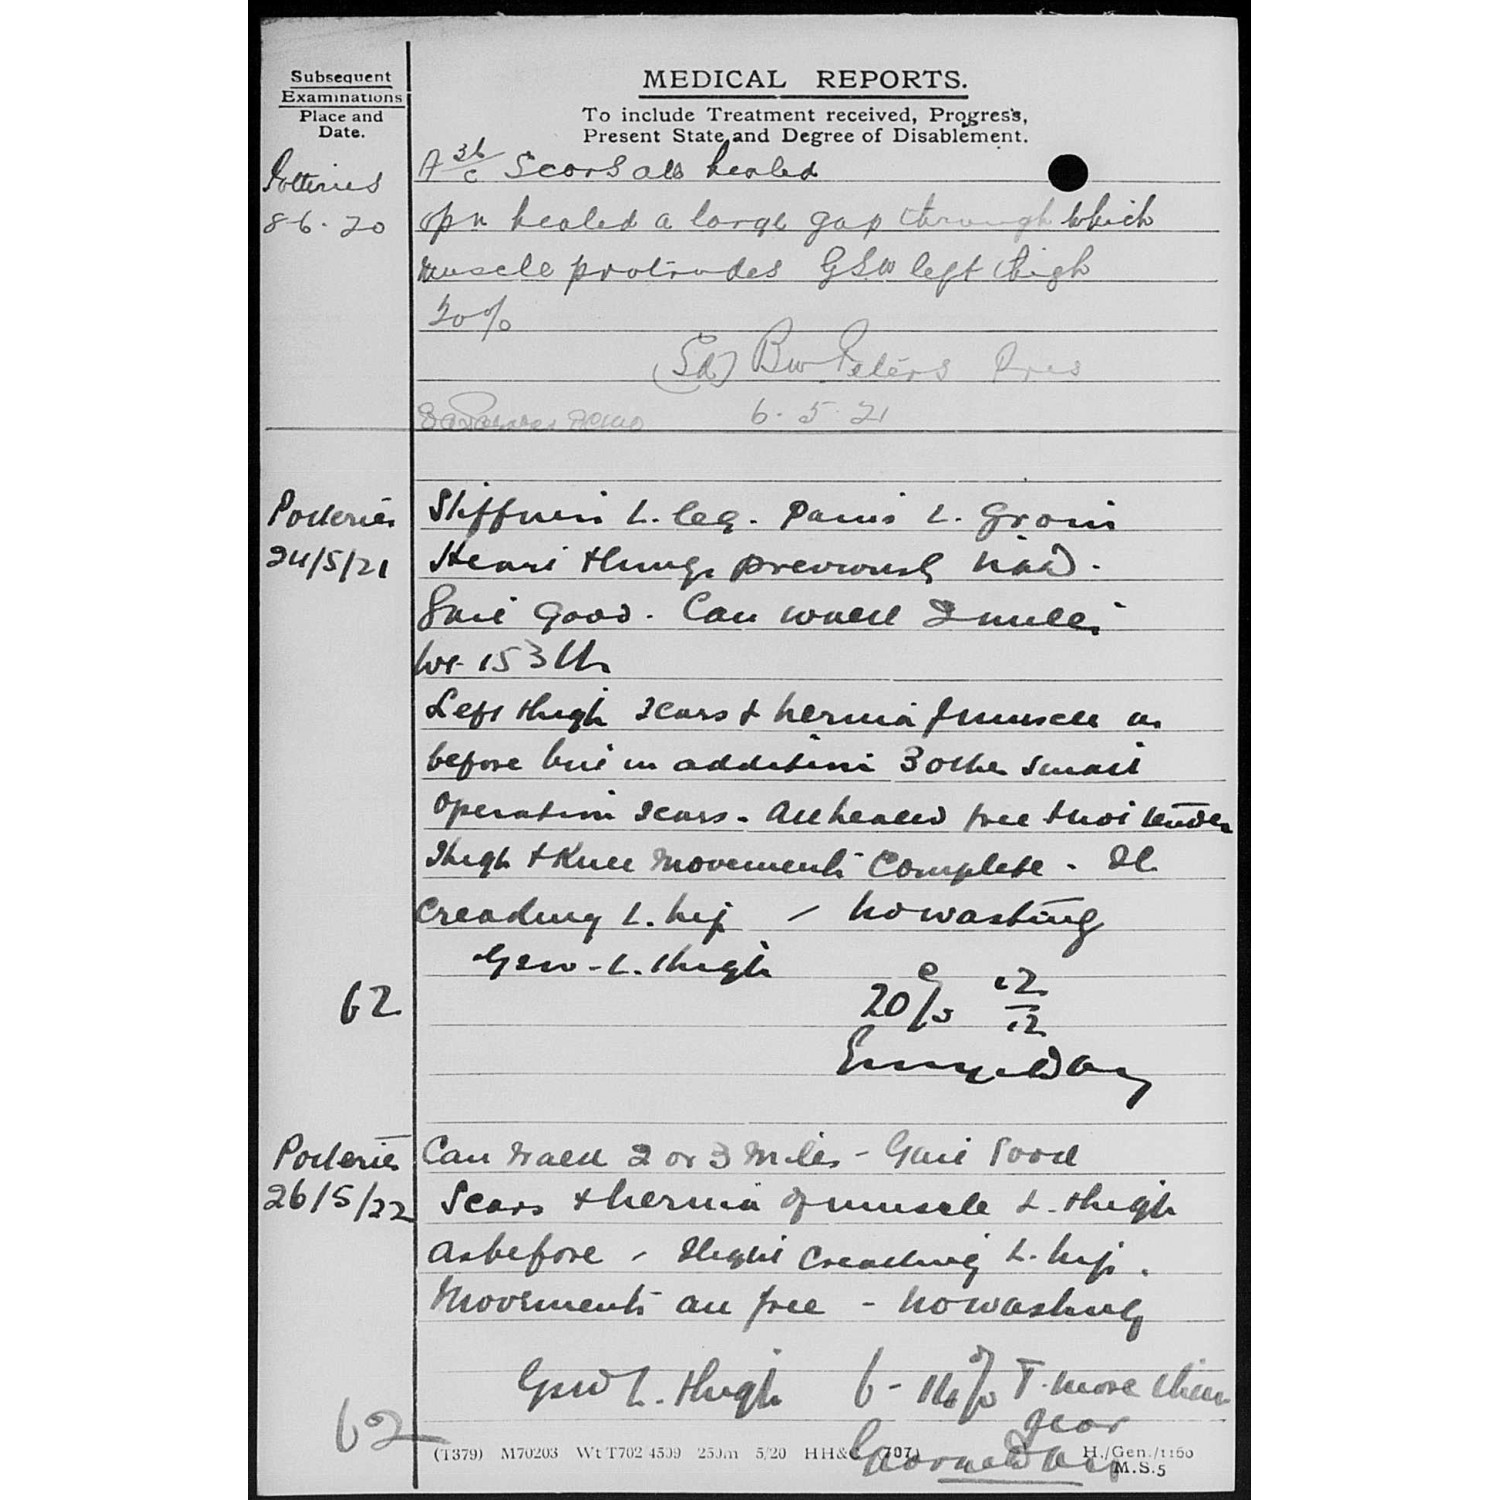 Subsequent
Examinations
Place and
Date.
MEDICAL REPORTS.
To include Treatment received, Progress,
Present State and Degree of Disablement.
Potteries
8-6-20
A 36/c Scars all healed
opn healed a large gap through which
muscle protrudes GSW left thigh
20%
(Sd) BW Peters Pres
6.5.21
Potteries
24/5/21
Stiffness L. leg. Pains L. Groin
Heart & lungs previously NAD.
Gait Good. Can walk 2 miles
Wt. 153 lbs
Left thigh scars & hernia of muscle as
before but in addition 3 other small
operation scars. All healed free & not tender
Thigh & Knee movements Complete. Sl
Creaking L. hip / no wasting
GSW - L. thigh
62
20% 12/12
Potteries
26/5/22
Can walk 2 or 3 miles - Gait Good
Scars & hernia of muscle L. thigh
as before / slight creaking L. hip.
Movements all free - no wasting
GSW L. thigh 6-14% T. more than
year
62
(T379) M70203 Wt T702/4599 250m 5/20 HH&L (707)
H./Gen./1160
M.S.5